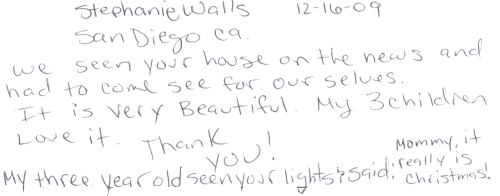 Stephanie Walls 12-16-09
San Diego ca.
we seen your house on the news and
had to come see for our selves.
It is very Beautiful. My 3 children
Love it. Thank
you!
My three year old seen your lights & said: Mommy, it
really is
christmas!